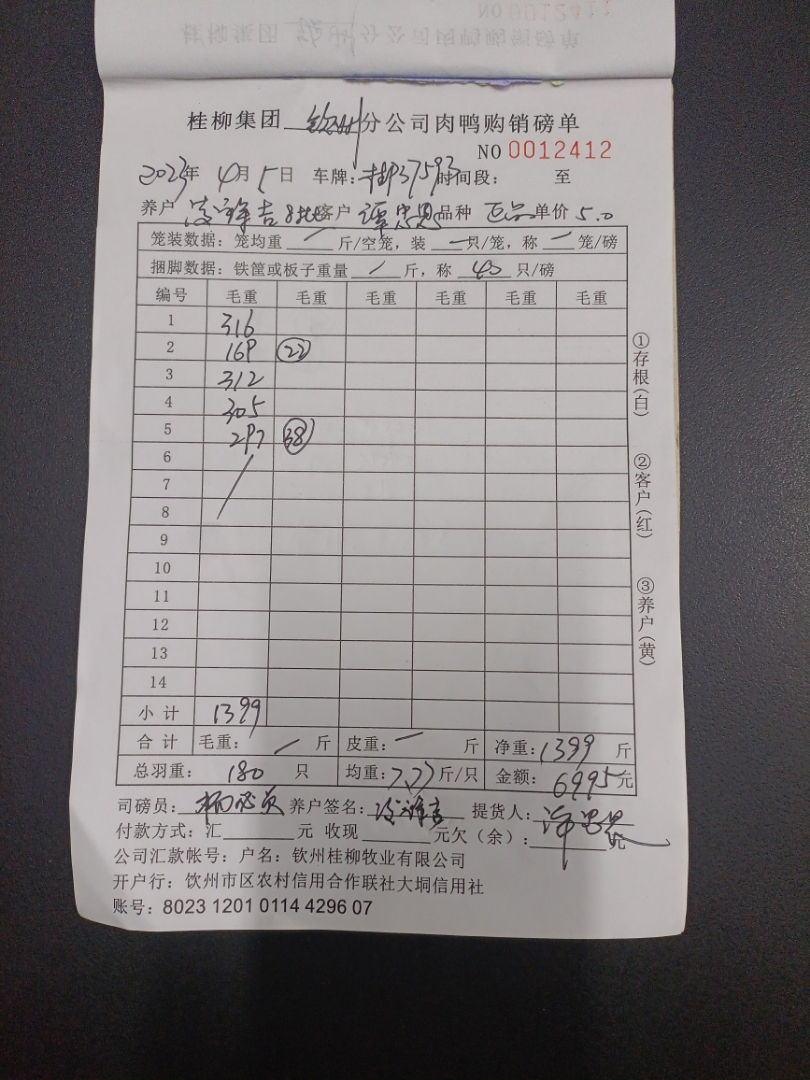 桂柳集团 钦州 分公司肉鸭购销磅单
NO 0012412
2023年 4月5日 车牌: 桂P37593 时间段: 至
养户 凌锋吉 8批 客户 谭忠恩 品种 正品 单价 5.0
笼装数据: 笼均重 / 斤/空笼, 装 一 只/笼, 称 一 笼/磅
捆脚数据: 铁筐或板子重量 / 斤, 称 40 只/磅
编号 毛重 毛重 毛重 毛重 毛重 毛重
1 316
2 169 (22)
3 312
4 305
5 297 (38)
6
7
8
9
10
11
12
13
14
小计 1399
合计 毛重: 一 斤 皮重: 一 斤 净重: 1399 斤
总羽重: 180 只 均重: 7.77 斤/只 金额: 6995 元
司磅员: 养户签名: 提货人:
付款方式: 汇 元 收现 元欠(余): 元
公司汇款帐号: 户名: 钦州桂柳牧业有限公司
开户行: 钦州市区农村信用合作联社大垌信用社
账号: 8023 1201 0114 4296 07
①存根(白)
②客户(红)
③养户(黄)